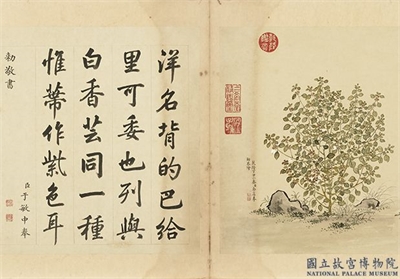 洋名背的巴給
里可委也列與
白香芸同一種
惟蒂作紫色耳
臣于敏中奉
勅敬書
國立故宮博物院
NATIONAL PALACE MUSEUM